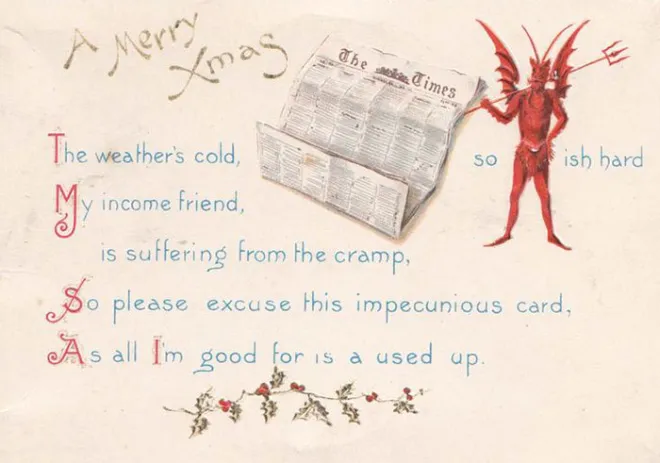 A Merry
Xmas
The Times
The weather's cold,
so ish hard
My income friend,
is suffering from the cramp,
So please excuse this impecunious card,
As all I'm good for is a used up.